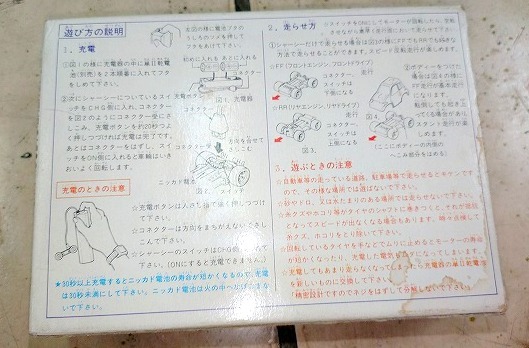 遊び方の説明
1. 充電
①図1の様に充電器の中に単1乾電
池(別売)を2本順番に入れてフタ
をしめて下さい。
左図の様に電池フタの
うしろのツメを押して
フタをあけて下さい。
初めに入れる あとに入れる
コネクター
図1. 充電器
②次にシャーシーについているスイ
ッチをCHG側に入れ、コネクター
を図2のようにコネクター受にさ
しこみ、充電ボタンを約20秒つよ
く押しつづければ充電は完了です。
あとはコネクターをはずし、スイッ
チをON側に入れると車輪はいき
おいよく回転します。
充電ボタン
コネクター
方向を合せて
ニッカド電池
図2. スイッチ
充電のときの注意
☆充電ボタンは人さし指で強く押しつづけ
て下さい。
☆コネクターは方向をまちがえないでさし
こんで下さい。
☆シャーシーのスイッチはCHG側に入れ
て下さい。(ONにすると充電できません)
★30秒以上充電するとニッカド電池の寿命が短かくなるので、充電
は30秒未満にして下さい。ニッカド電池は火の中へ
ないで下さい。
2. 走らせ方
☆スイッチをONにしてモーターが回転したら、
①シャーシーだけで走らせる場合は図3の様にFFでもRRでも好きな
方法で走らせることができます。スピード反転走行が楽しめます。
☆FF(フロントエンジン、フロントドライブ)
走行 コネクター、
スイッチは
下側になる
☆RR(リヤエンジン、リヤドライブ)
走行
コネクター
スイッチは
上側になる
図3.
②ボディーをつけた
場合は図4の様に
FF走行が基本走行
になります。
転倒しても起き上
図4.
(ここにボディーの内側の
へこみ部分をはめる)
3. 遊ぶときの注意
☆自動車等の走っている道路、駐車場等で走らせるとキケンですの
で、その様な場所では遊ばないで下さい。
☆砂やドロ、又は水たまりのある場所では走らせないで下さい。
☆糸クズやホコリ等がタイヤのシャフトにまきつくと、これが原因
となってスピードが出なくなる場合もあります。時々点検して
糸クズ、ホコリをとり除いて下さい。
☆回転しているタイヤを手などでムリに止めるとモーターの寿命
が短かくなったり、充電した電気がムダになってしまいます。
☆充電してもあまり走らなくなってしまったら充電器の単1乾電池
を新しいものに交換して下さい。
「精密設計ですのでネジをはずして分解しないで下さい」